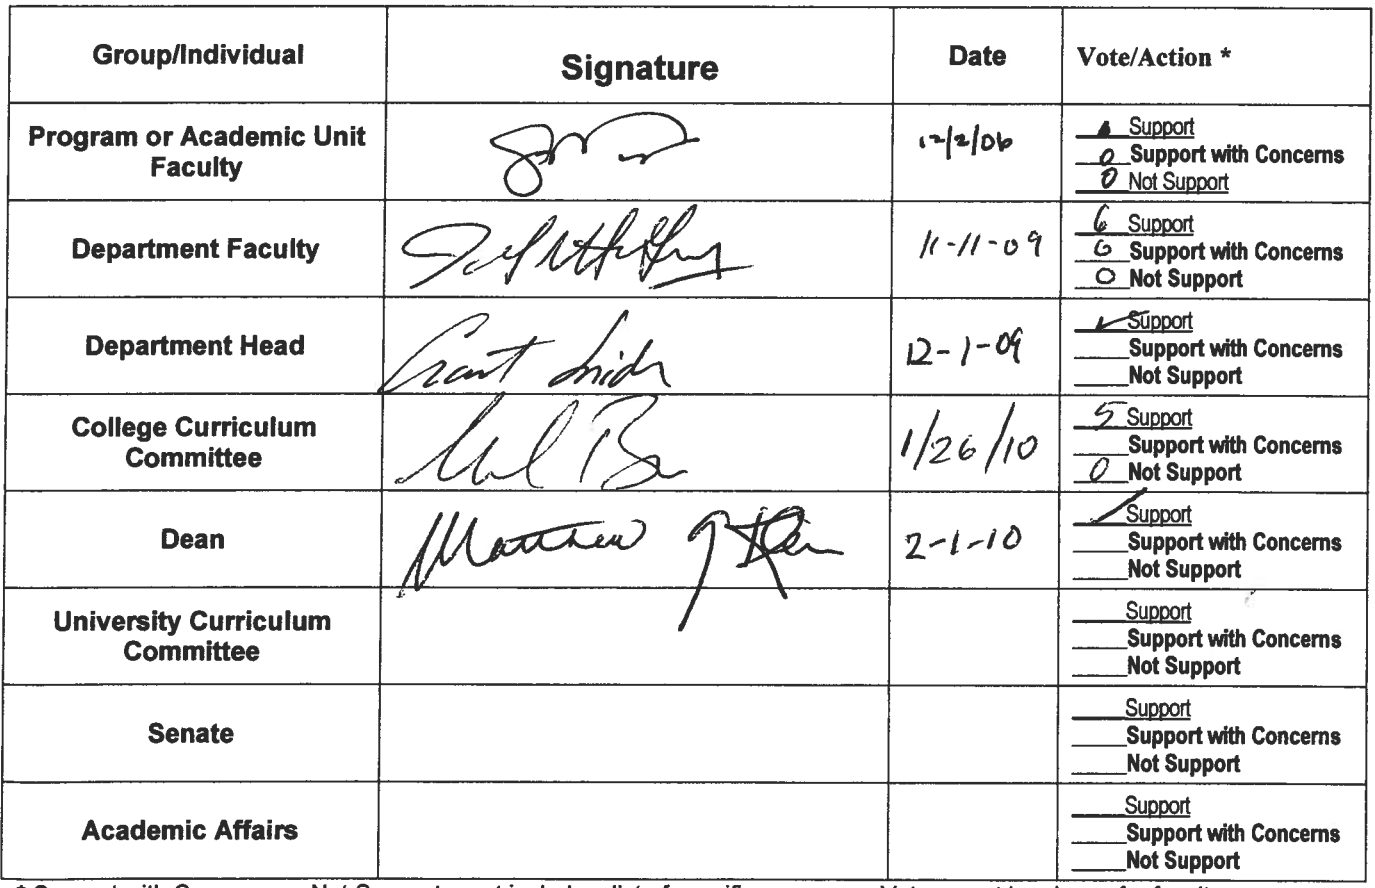 Group/Individual Signature Date Vote/Action *
Program or Academic Unit
Faculty
12/2/06
Support
0 Support with Concerns
0 Not Support
Department Faculty
11-11-09
6 Support
0 Support with Concerns
0 Not Support
Department Head
Grant
12-1-09
✓ Support
Support with Concerns
Not Support
College Curriculum
Committee
1/26/10
5 Support
Support with Concerns
0 Not Support
Dean
Matthew
2-1-10
Support
Support with Concerns
Not Support
University Curriculum
Committee
Support
Support with Concerns
Not Support
Senate
Support
Support with Concerns
Not Support
Academic Affairs
Support
Support with Concerns
Not Support